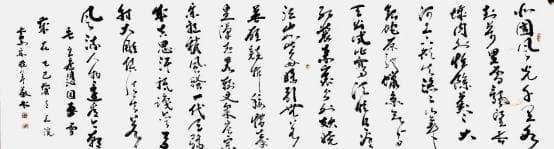 北国风光千里冰
封万里雪飘望长
城内外惟馀莽莽大
河上下顿失滔滔山舞
银蛇原驰蜡象欲与
天公试比高须晴日看
红装素裹分外妖娆
江山如此多娇引无数
英雄竞折腰惜秦
皇汉武略输文采唐
宗宋祖稍逊风骚一代天骄
成吉思汗只识弯弓
射大雕俱往矣数
风流人物还看今朝
毛主席沁园春雪
岁在乙巳